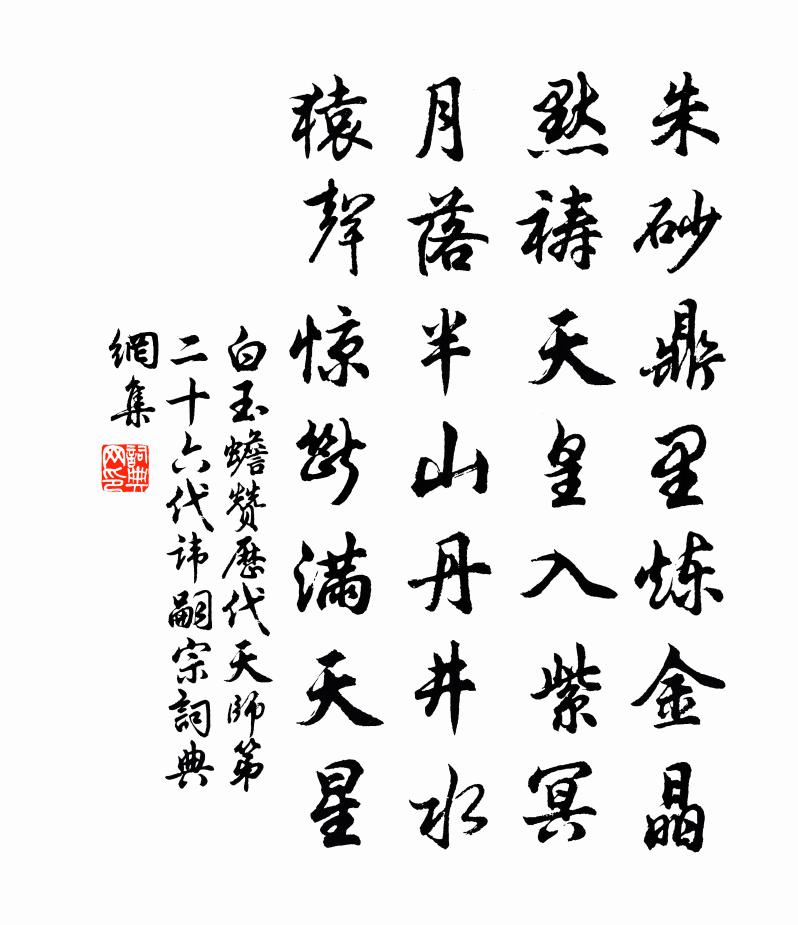 朱砂鼎里炼金晶
默祷天皇入紫冥
月落半山丹井水
猿声惊断满天星
白玉蟾赞历代天师第
二十六代讳嗣宗词典
網集
詞典
网印